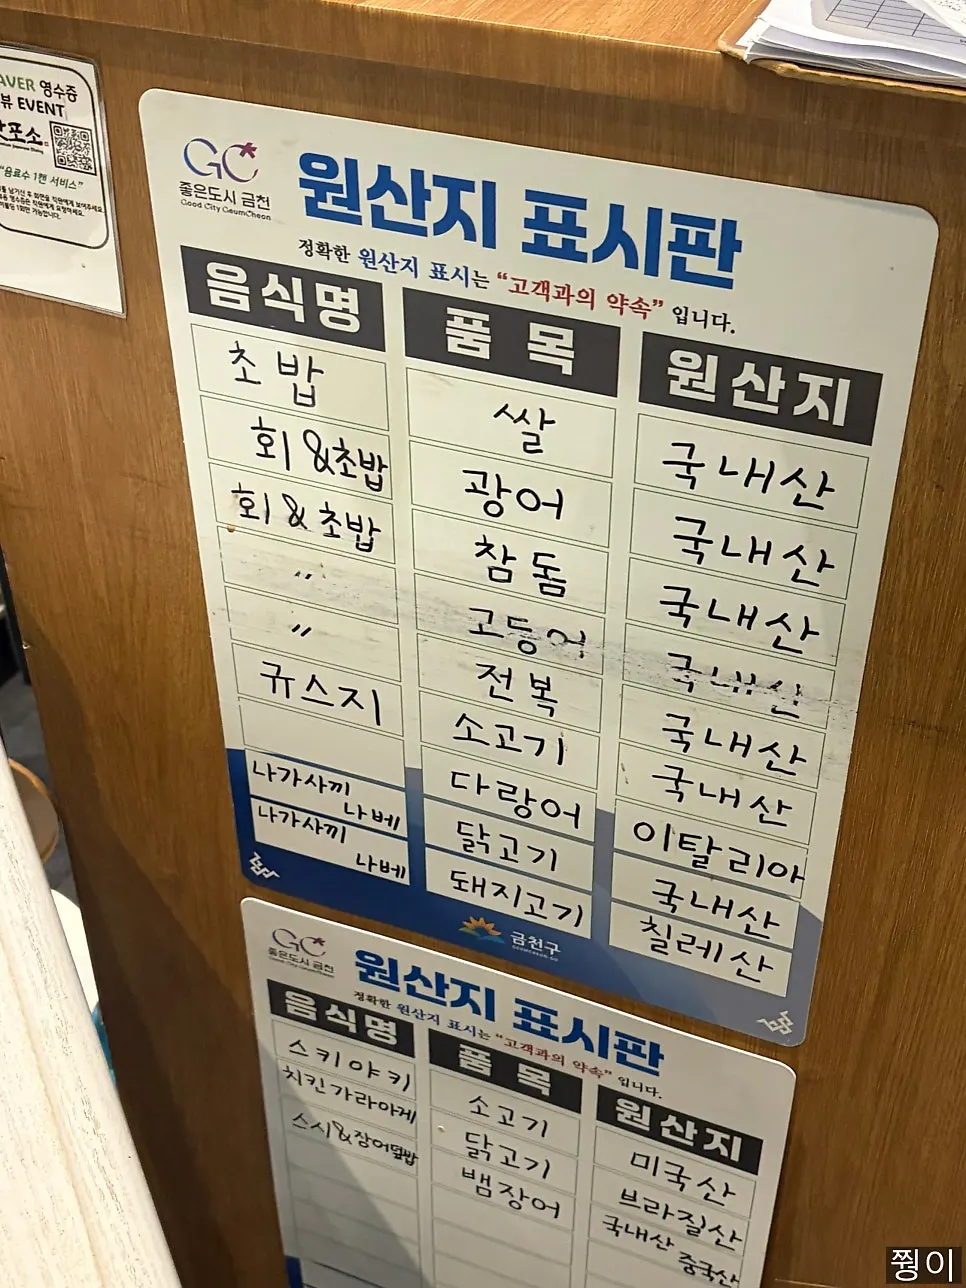 AVER 영수증
뷰 EVENT
포소
"음료수 1캔 서비스"
GC
좋은도시 금천
Good City GeumCheon
원산지 표시판
정확한 원산지 표시는 "고객과의 약속" 입니다.
음식명 품목 원산지
초밥 쌀 국내산
회&초밥 광어 국내산
회&초밥 참돔 국내산
〃 고등어 국내산
〃 전복 국내산
규스지 소고기 국내산
다랑어 이탈리아
나가사끼 나베 닭고기 국내산
나가사끼 나베 돼지고기 칠레산
금천구
GC
좋은도시 금천
Good City GeumCheon
원산지 표시판
정확한 원산지 표시는 "고객과의 약속" 입니다.
음식명 품목 원산지
스키야키 소고기 미국산
치킨가라아게 닭고기 브라질산
스시&장어덮밥 뱀장어 국내산 중국산
쩡이